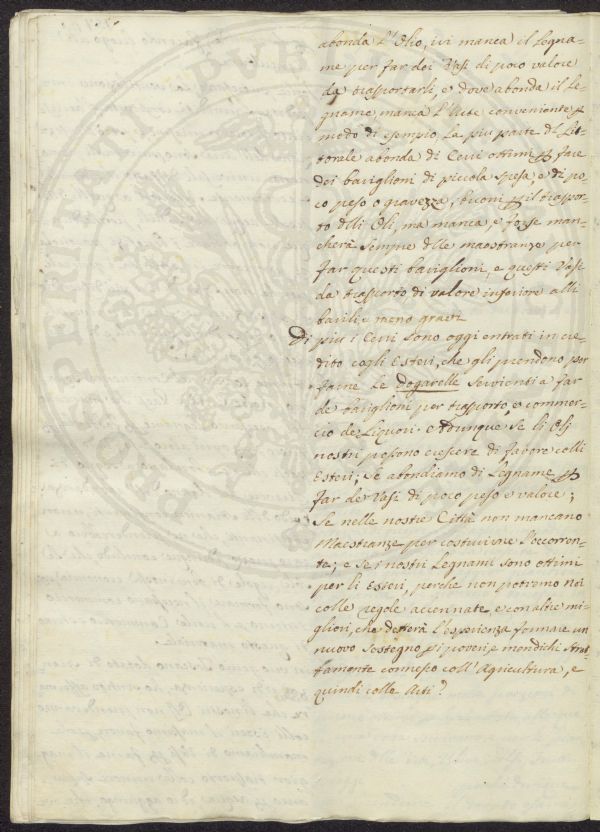 abonda l'Olio, ivi manca il Legna=
me per far dei Vasi di poco valore
da trasportarli, e dove abonda il Le=
gname, manca l'Arte conveniente p
modo di esempio. La più parte del Lit=
torale abonda di Cerri ottimi p fare
dei bariglioni di piccola spesa, e di po=
co peso o gravezza, buoni p il traspor=
to delli Oli, ma manca e forse man=
cherà sempre delle maestranze per
far questi bariglioni, e questi Vasi
da trasporto di valore inferiore alli
barili e meno gravi
Di più i Cerri sono oggi entrati in cre=
dito cogli Esteri, che gli prendono per
farne le dogarelle servienti a far
de bariglioni per trasporto, e commer=
cio de Liquori. e dunque se li Olj
nostri possono crescere di favore colli
Esteri; se abondiamo di Legname p
far de Vasi di poco peso e valore;
se nelle nostre Città non mancano
Maestranze per costruirne l'occorren=
te; e se i nostri Legnami sono ottimi
per li Esteri, perche non potremo noi
colle regole accennate, e con altre mi=
gliori, che detterà l'esperienza formare un
nuovo sostegno p i poveri, e mendichi stret=
tamente connesso coll'Agricultura, e
quindi colle Arti?